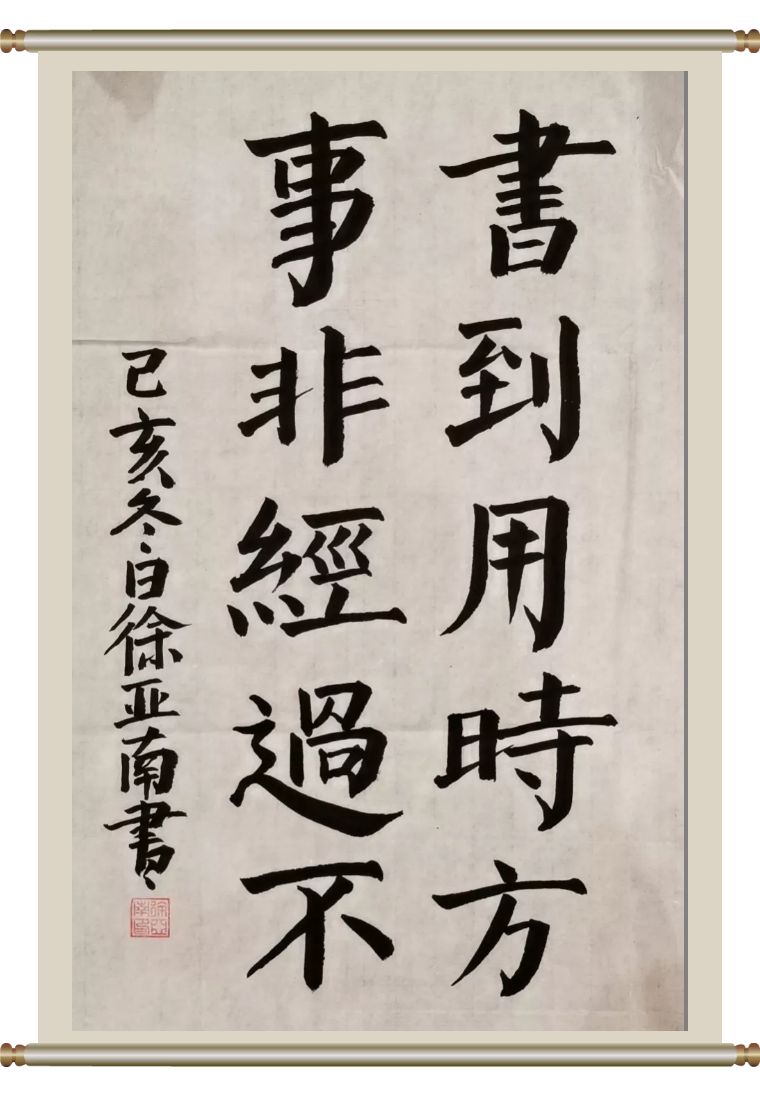 書到用時方
事非經過不
己亥冬日徐亚南書